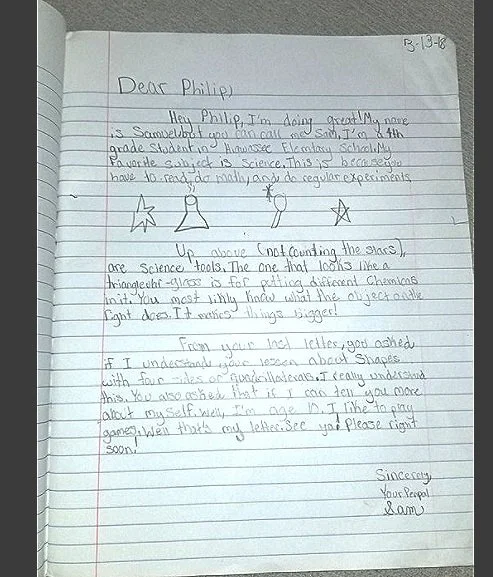 3-13-18
Dear Philip,
Hey Philip, I'm doing great! My name
is Samuel but you can call me Sam, I'm a 4th
grade student in Hiawassee Elementary School. My
Favorite subject is Science. This is because you
have to read, do math, and do regular experiments
Up above (not counting the stars),
are science tools. The one that looks like a
triangleular-glass is for putting different Chemicas
in it. You most likly know what the object on the
right does. It makes things bigger!
From your last letter, you asked
if I understands your lesson about Shapes
with four sides or quadrillaterals. I really understand
this. You also asked that if I can tell you more
about my self. Well, I'm age 10. I like to play
games. Well that's my letter. See you! Please right
soon!
Sincerely,
Your Penpal
Sam